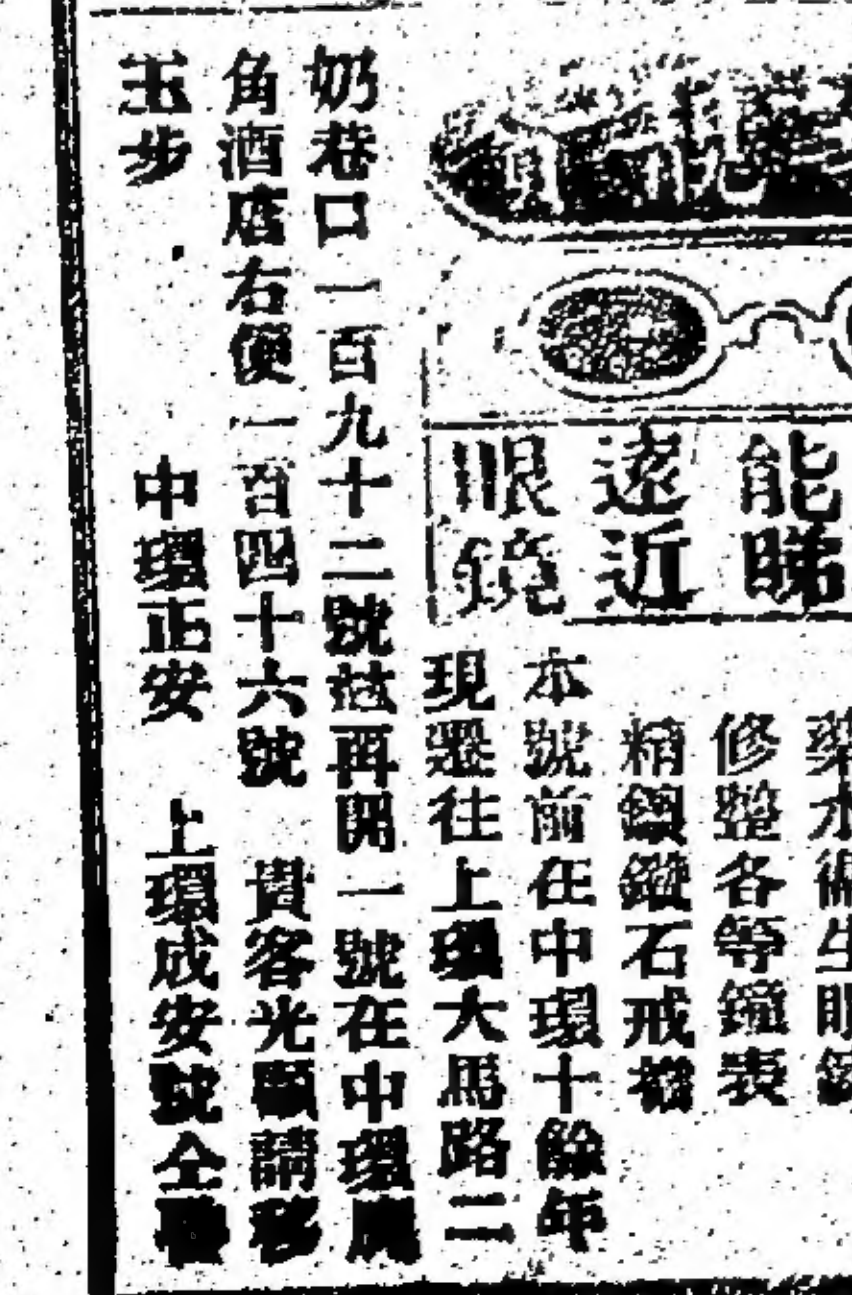 能睇
遠近
眼鏡
修整各等鐘表
精鑲鑽石戒
本號前在中環十餘年
現遷往上環大馬路二
奶巷口一百九十二號茲再開一號在中環
角酒店右便一百四十六號 貴客光顧請移
玉步 中環正安 上環成安號仝